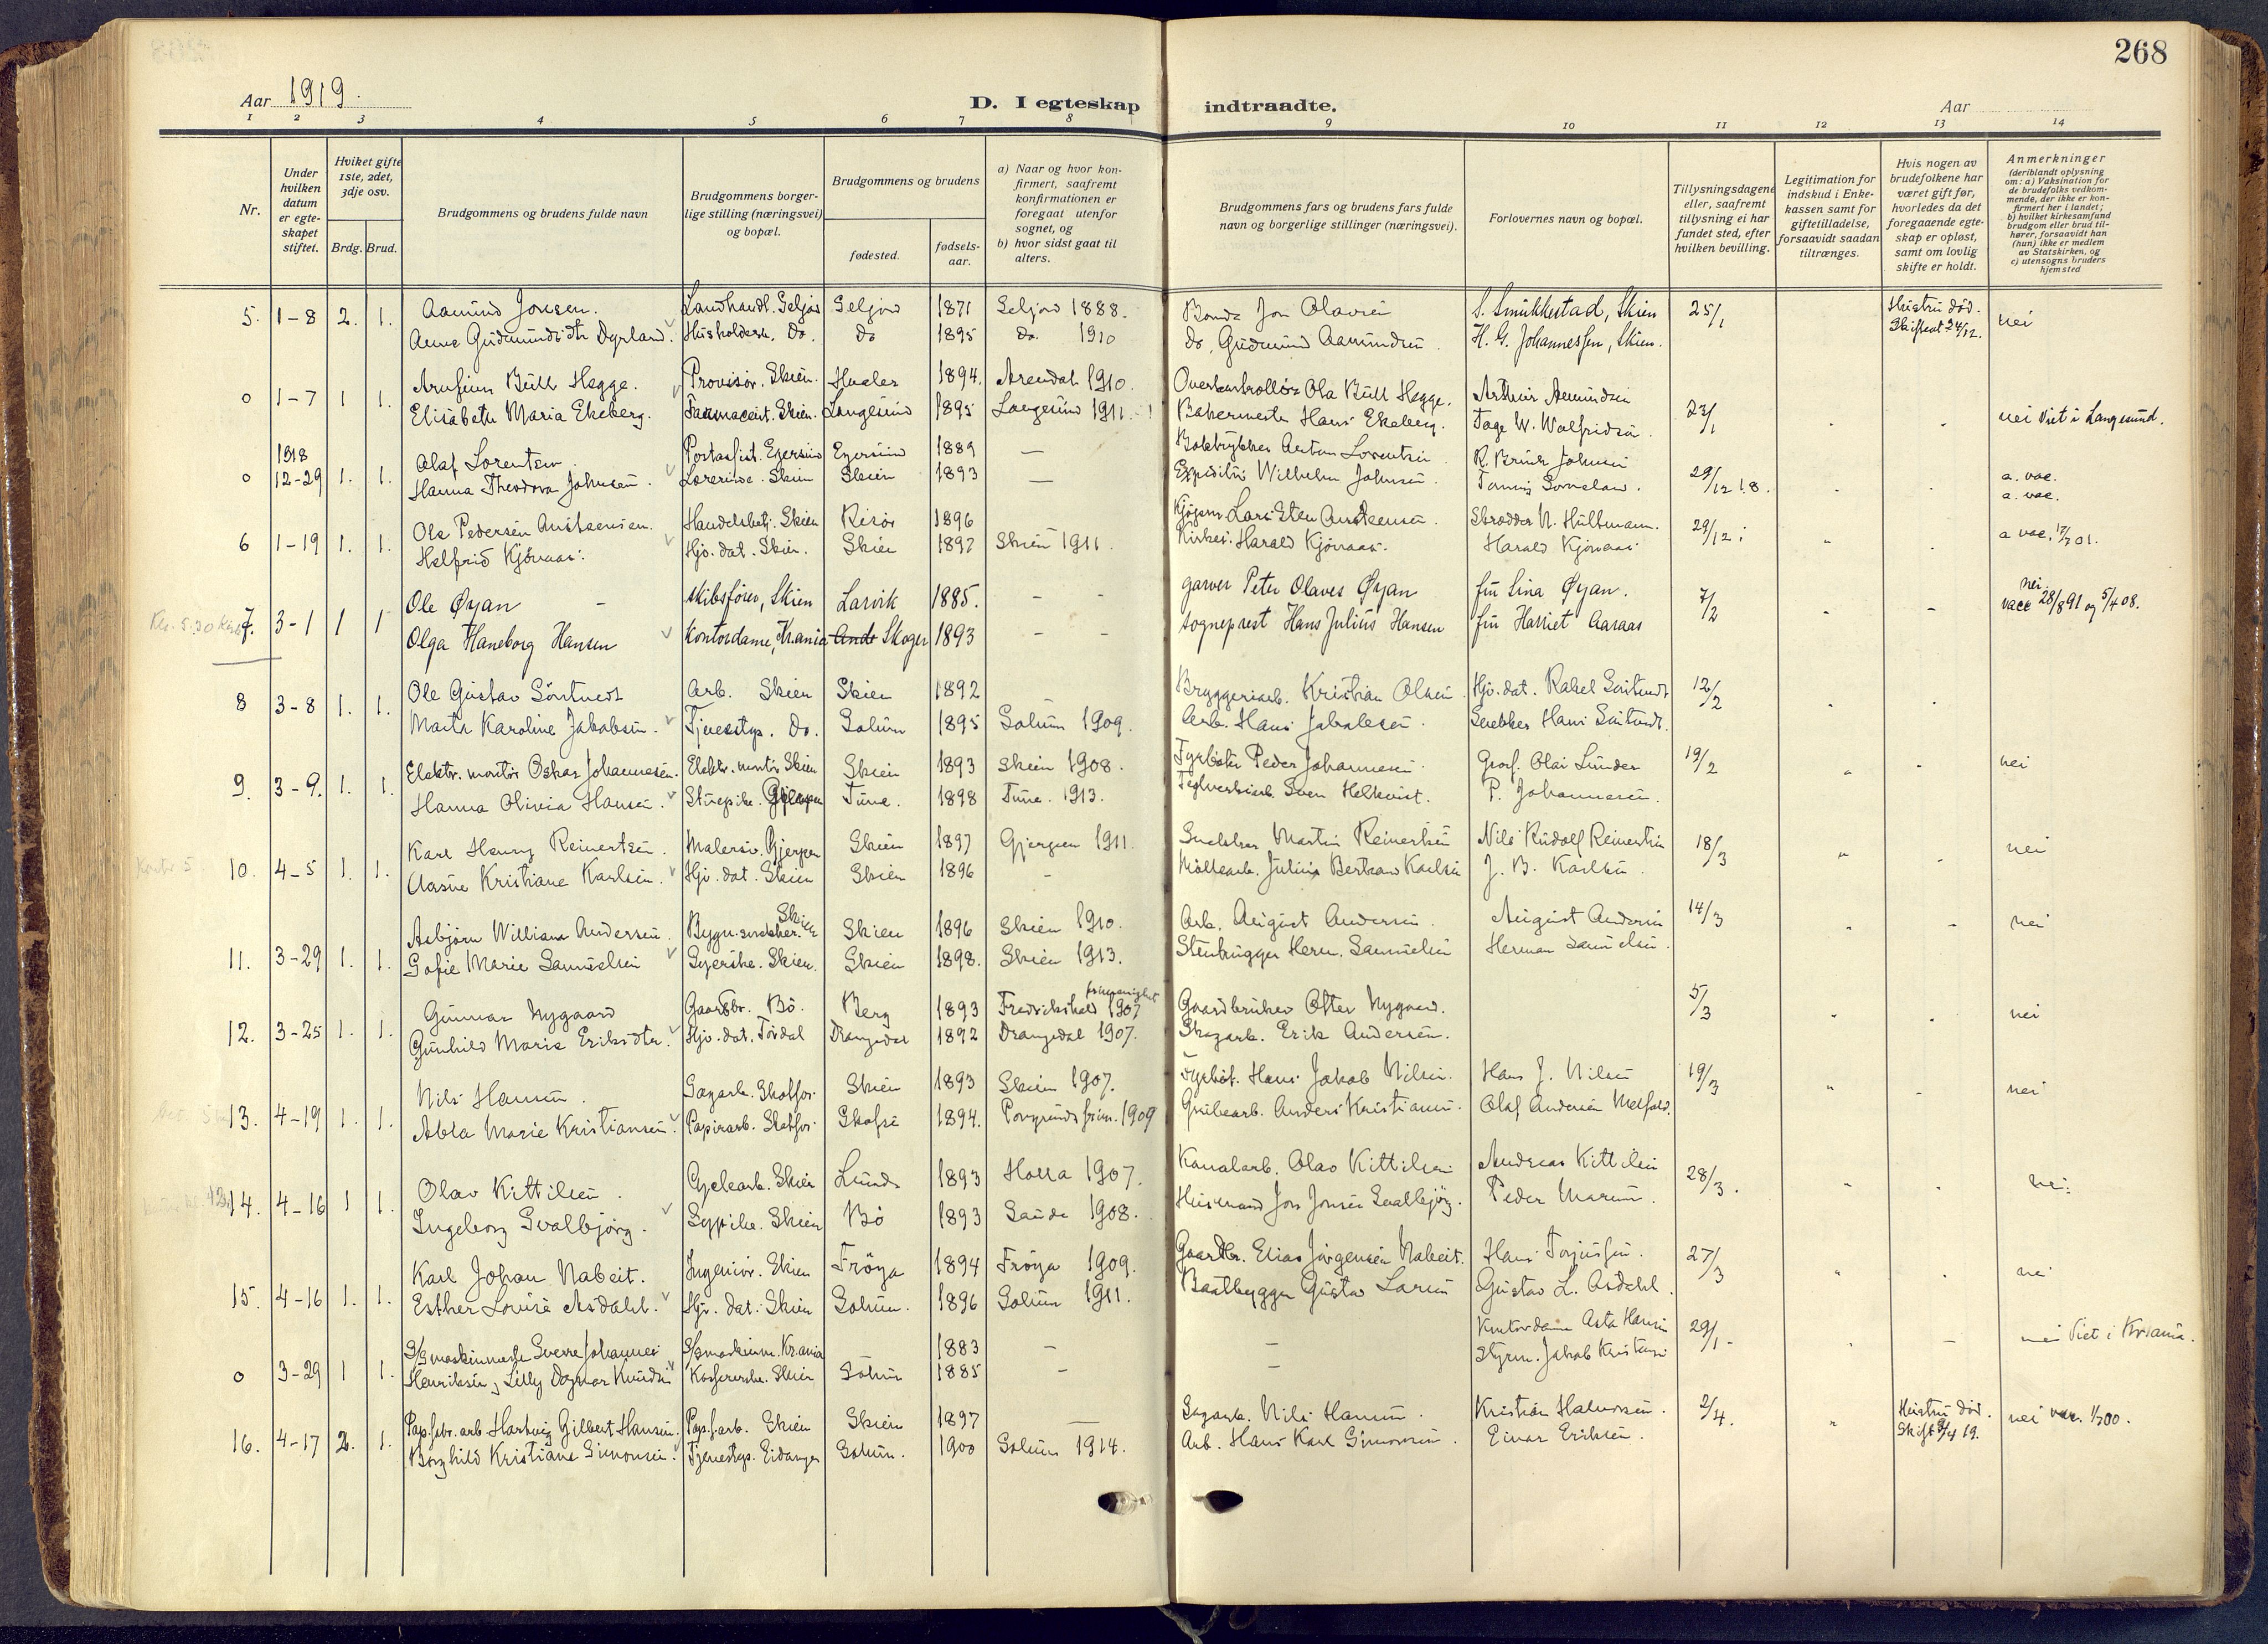 268
Aar 1919.
D. I egteskap indtraadte.
Aar
1 2 3 4 5 6 7 8 9 10 11 12 13 14
Nr.
Under hvilken datum er egte-skapet stiftet.
Hviket gifte 1ste, 2det, 3dje osv.
Brdg. Brud.
Brudgommens og brudens fulde navn
Brudgommens borger-lige stilling (næringsvei) og bopæl.
Brudgommens og brudens
fødested.
fødsels-aar.
a) Naar og hvor kon-firmert, saafremt konfirmationen er foregaat utenfor sognet, og
b) hvor sidst gaat til alters.
Brudgommens fars og brudens fars fulde navn og borgerlige stillinger (næringsvei).
Forlovernes navn og bopæl.
Tillysningsdagene eller, saafremt tillysning ei har fundet sted, efter hvilken bevilling.
Legitimation for indskud i Enke-kassen samt for giftetilladelse, forsaavidt saadan tiltrænges.
Hvis nogen av brudefolkene har været gift før, hvorledes da det foregaaende egte-skap er opløst, samt om lovlig skifte er holdt.
Anmerkninger
(deriblandt oplysning om: a) Vaksination for de brudefolks vedkom-mende, der ikke er kon-firmert her i landet; b) hvilket kirkesamfund brudgom eller brud til-hører, forsaavidt han (hun) ikke er medlem av Statskirken, og c) utensogns bruders hjemsted
5. 1-8 2. 1. Aamund Jonsen. Landhandl. Seljord Seljord 1871 Seljord 1888. Bonde Jon Olavsen S. Smukkestad, Skien 25/1 Hustru død. nei
Anne Gudmundsdtr Dyrland. Husholdersk. Do. Do 1895 Do. 1910 Do. Gudmund Aamundsen. H. G. Johannessen, Skien.
0 1-7 1 1. Bull Hegge. Provisor. Skien. 1894. Arendal 1910. Ola Bull Hegge. Arthur Amundsen 23/1
Elisabeth Maria Ekeberg. Farmaceut. Skien. Langesund 1895 Langesund 1911. Bakermester Hans Ekeberg. Tage W. Walfridsen. nei Viet i Langesund.
1918
0 12-29 1. 1. Olaf Lorentsen Egersund Egersund 1889 — Boktrykker Anton Lorentsen R. Johnsen 29/12 18. a. vac.
Hanna Theodora Johnsen. Lærerinde. Skien Skien 1893 — Wilhelm Johnsen. a. vac.
6 1-19 1. 1. Ole Pedersen Anstensen. Handelsbetj. Skien Risør 1896 Lars Sten Anstensen. Skrædder N. Hultmann. 29/12
Helfrid Kjönaas. Hjv. dat. Skien. Skien 1897 Skien 1911. Harald Kjönaas. Harald Kjönaas a vac.
7. 3-1 1 1 Ole Øyan skibsfører, Skien Larvik 1885. - - garver Peter Olaves Øyan fru Lina Øyan. 7/2 nei
Olga Haneborg Hansen Kontordame, Krania Skoger 1893 - - sogneprest Hans Julius Hansen fru Harriet Aaraas vacc 28/8 91 og 5/4 08.
8 3-8 1. 1. Ole Gustav Sörtvedt Arb. Skien Skien 1892 - Bryggeriarb. Kristian Olsen Hjv. dat. Rakel Sörtvedt 12/2
Marta Karoline Jakobsen. Tjenestep. Do. Solum 1895 Solum 1909. Arb. Hans Jakobsen. Snekker Hans Sörtvedt.
9. 3-9. 1. 1. Elektr. montör Oskar Johannesen. Elektr. montör Skien Skien 1893 Skien 1908. Fyrböter Peder Johannesen. Olai Lunder 19/2 nei
Hanna Olivia Hansen. Stuepike. Gjerpen Tune. 1898 Tune. 1913. Teglverksarb. Sven Helkvist. P. Johannesen.
10. 4-5 1. 1. Karl Henry Reinertsen. Malersv. Gjerpen Skien 1897 Gjerpen 1911. Snekker Martin Reinertsen Nils Rudolf Reinertsen 18/3 nei
Aasne Kristiane Karlsen. Hjv. dat. Skien Skien 1896 - Möllearb. Julius Bertram Karlsen J. B. Karlsen.
11. 3-29 1. 1. Asbjörn William Andersen. Bygn. snekker. Skien Skien 1896 Skien 1910. Arb. August Andersen. August Andersen 14/3 nei
Sofie Marie Samuelsen Syerske. Skien. Skien 1898. Skien 1913. Stenhugger Herm. Samuelsen Herman Samuelsen.
12. 3-25 1. 1. Gunnar Nygaard Gaardbr. Bö. Berg 1893 Fredrikshald 1907 Gaardbruker Otter Nygaard. 5/3 nei
Gunhild Marie Eriksdtr. Hjv. dat. Tördal Drangedal 1892 Drangedal 1907. Skogarb. Erik Andersen.
13. 4-19 1. 1. Nils Hansen. Sagarb. Skotfos. Skien 1893 Skien 1907. Fyrböt. Hans Jakob Nilsen. Hans J. Nilsen 19/3 nei
Abla Marie Kristiansen. Papirarb. Skotfos. 1894. 1909 Grubearb. Anders Kristiansen. Olaf Andersen
14. 4-16 1 1. Olav Kittilsen. Skien Lunde 1893 Holla 1907. Kanalarb. Olav Kittilsen Andreas Kittilsen 28/3. nei.
Ingeborg Svalbjörg. Sypike. Skien Bö 1893 Saude 1908. Husmand Jon Jonsen Svalbjörg. Peder
15. 4-16 1. 1. Karl Johan Nabeit. Ingeniör. Skien Fröya 1894 Fröya 1909. Gaardbr. Elias Jörgensen Nabeit. Hans Torjussen. 27/3 nei
Esther Lovise Asdahl. Hjv. dat. Skien Solum. 1896 Solum 1911. Baatbygger Gustav Larsen Gustav L. Asdahl.
0 3-29 1 1. Sverre Johannes Krania 1883 - - Kontordame Asta Hansen 29/1 - nei Viet i Krania.
Henriksen, Lilly Dagmar Knudsen Kassererske. Skien Solum 1885 - - Styrm. Jakob Kristensen
16. 4-17 2. 1. Pap.fabr. arb. Hartvig Gilbert Hansen. Pap.f.arb. Skien Skien 1897 — Sagarb. Nils Hansen. Kristian Halvorsen. 2/4. Hustru död. nei
Borghild Kristiane Simonsen. Tjenestep. Eidanger Solum. 1900 Solum 1914. Arb. Hans Karl Simonsen. Einar Eriksen.